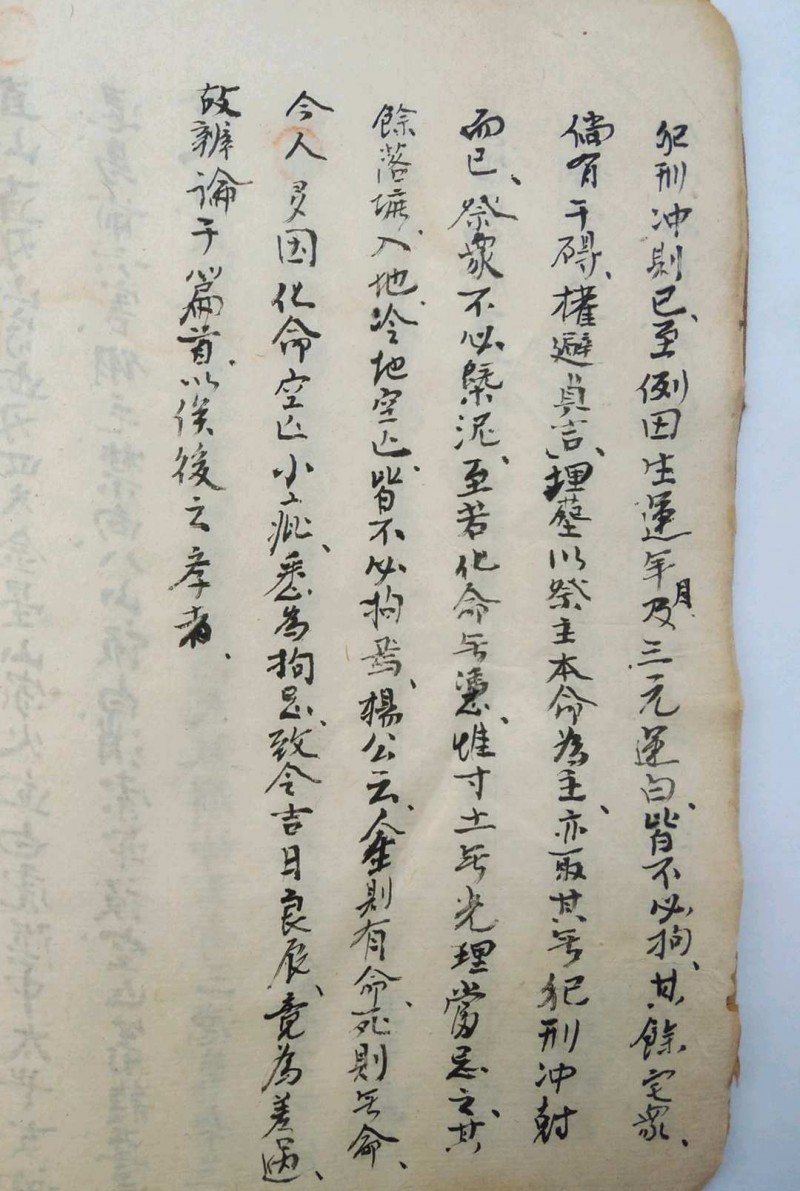 犯刑冲則已、至例因生運年月及三元運白、皆不必拘、其餘宅眾、
倘有干碍、權避貞吉、埋塟以祭主本命為主、亦取其无犯刑冲尅
而已、祭眾不必槩泥、至若化命无憑、惟寸土无光理當忌之、其
餘落壙、入地、冷地空亡、皆不必拘焉、楊公云、人生則有命、死則无命、
今人多因化命空亡小疵、悉為拘忌、致令吉日良辰、竟為差過、
故辨論于篇首、以俟後之孝者、